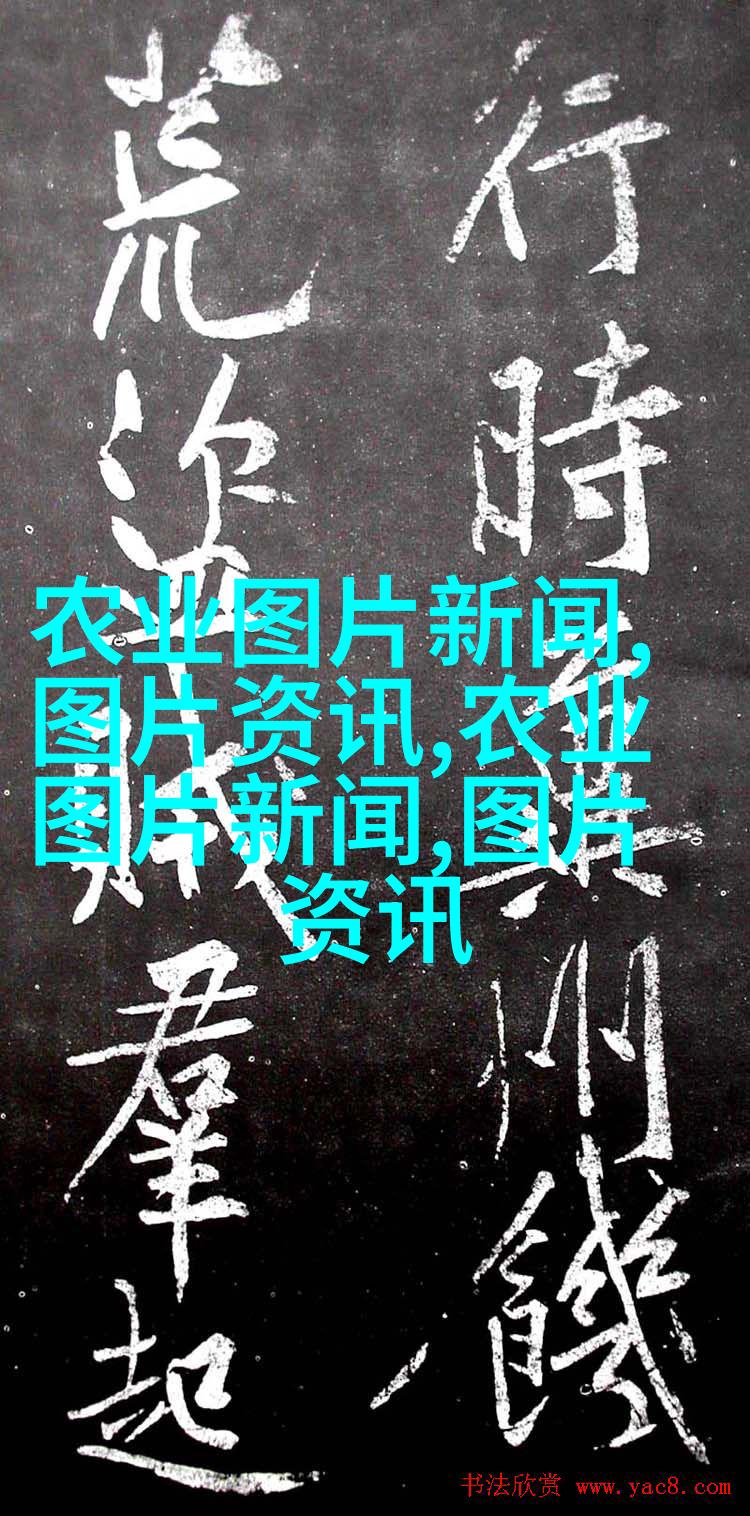 行時冀州饑
荒盜賊羣起
农业图片新闻,
图片资讯,农业
图片新闻,图片
资讯
书法欣赏 www.yac8.com